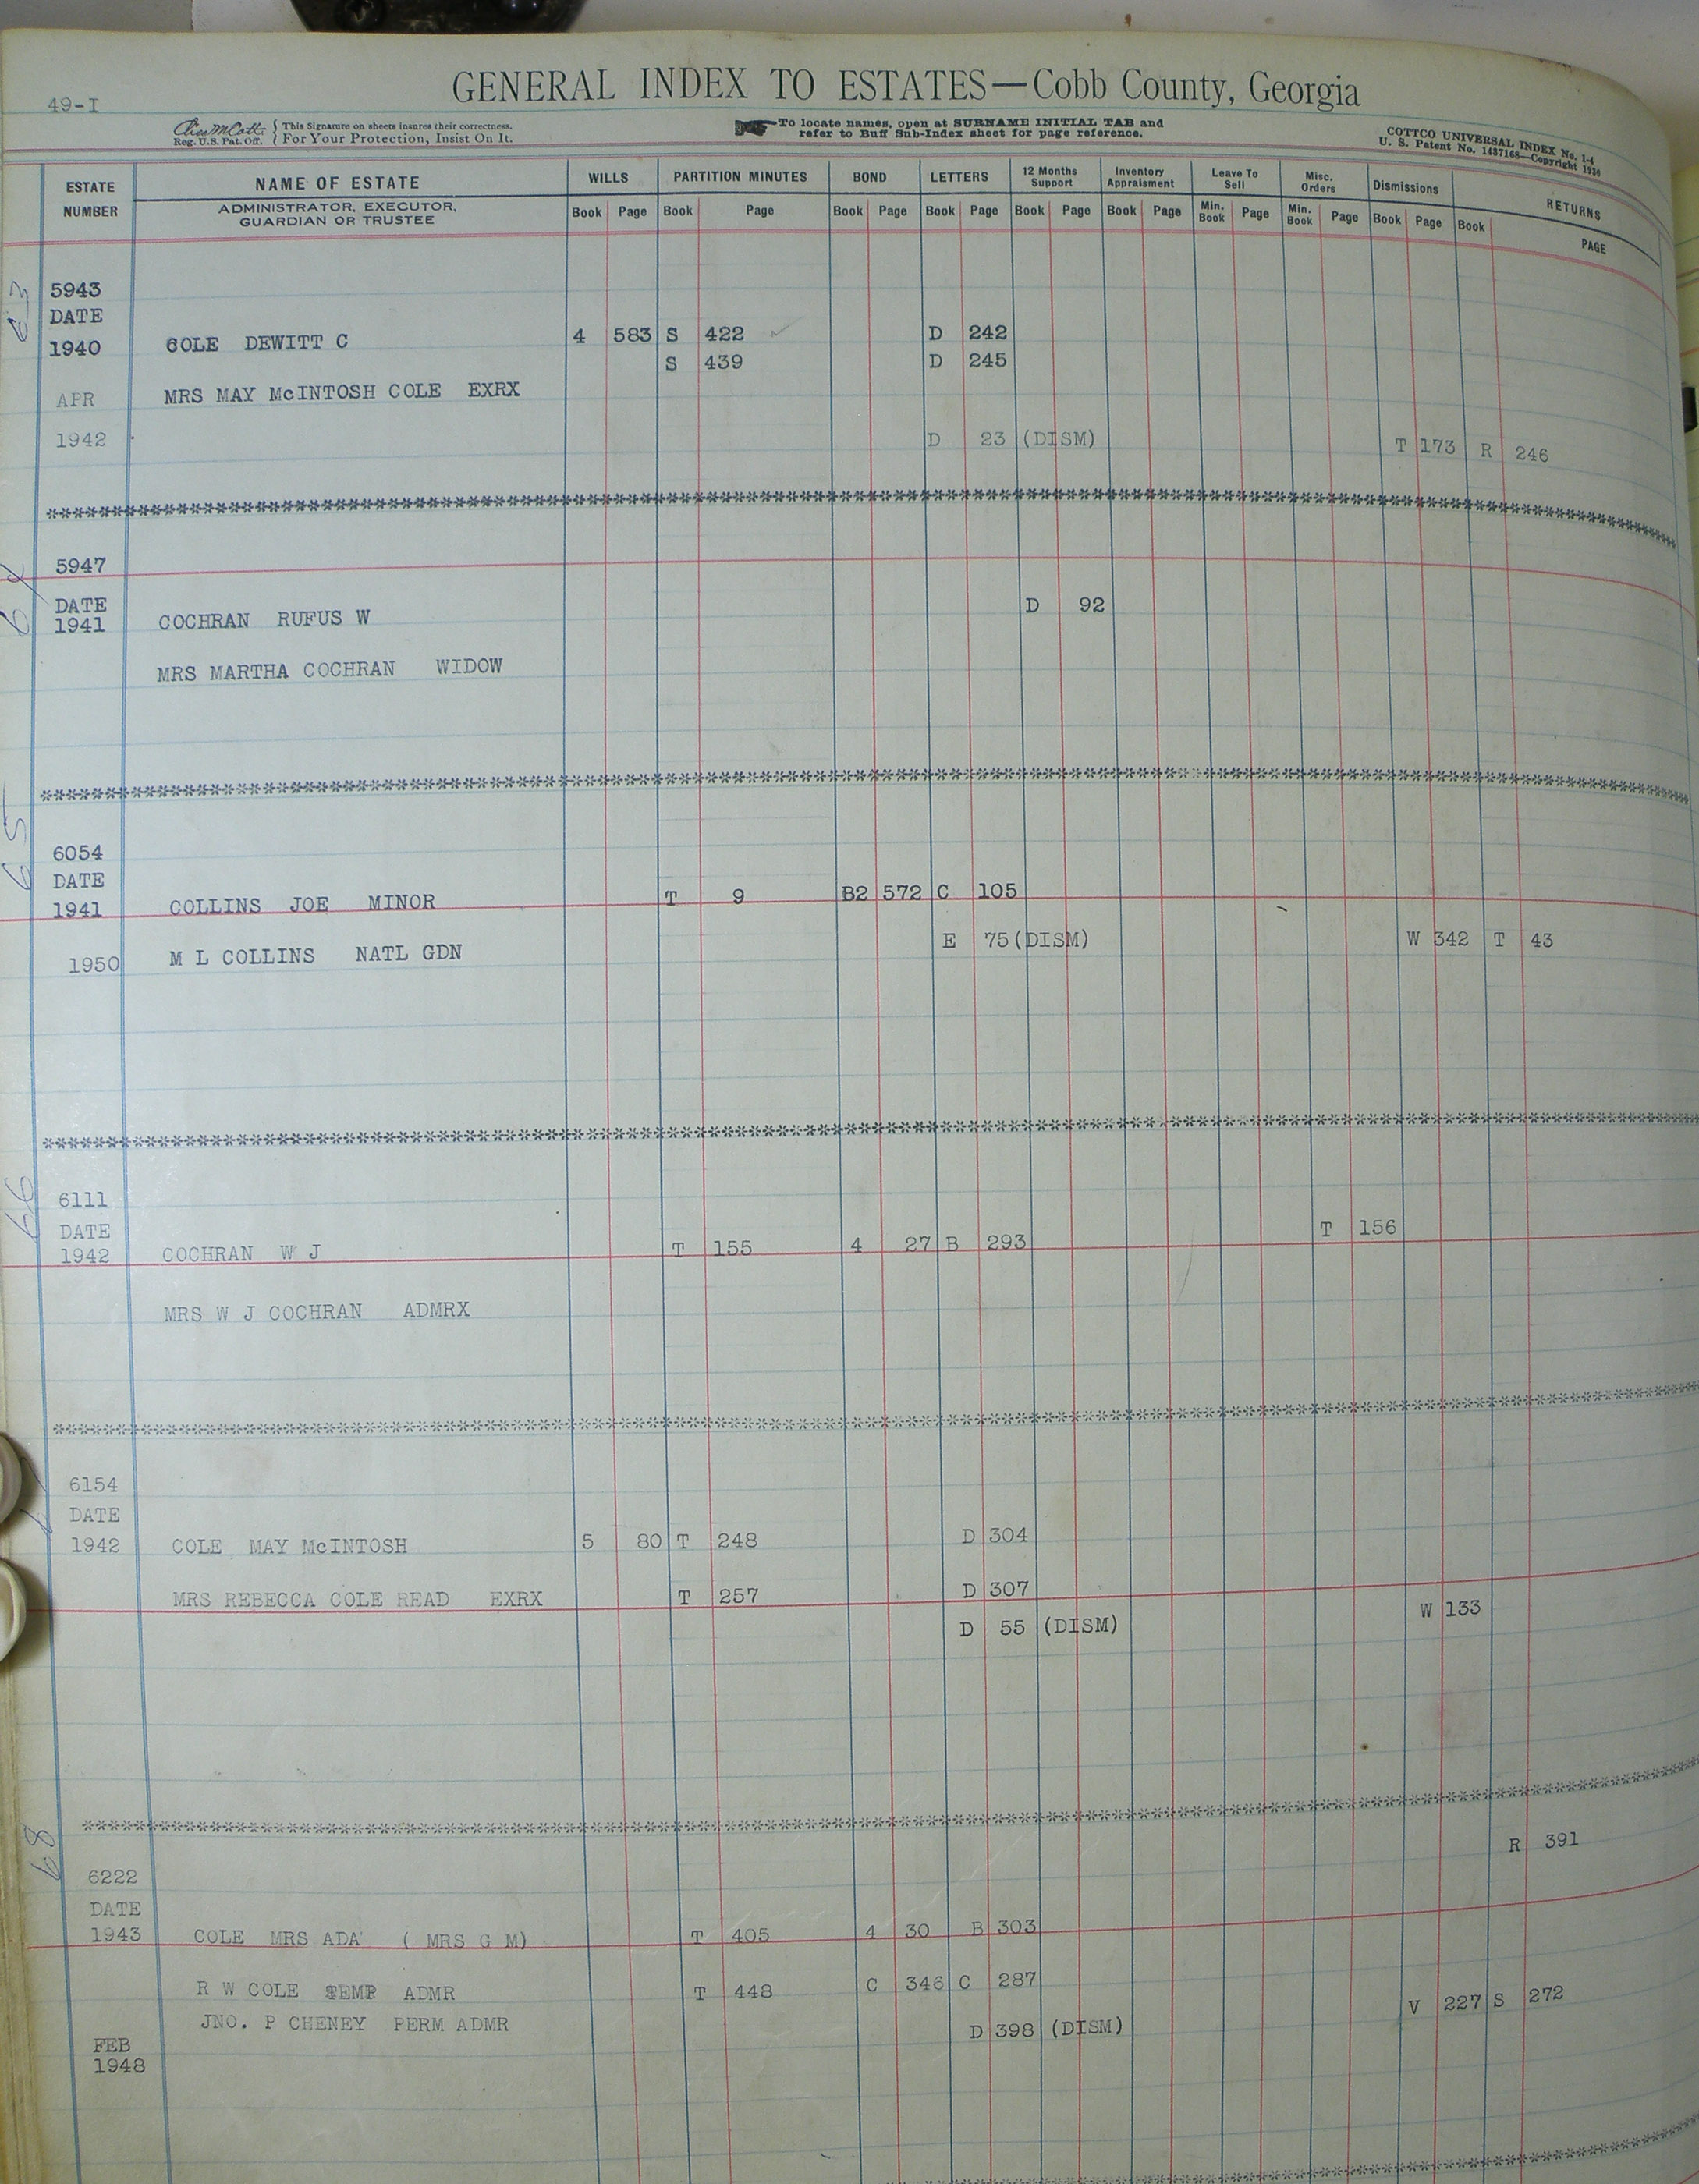 49-I
GENERAL INDEX TO ESTATES—Cobb County, Georgia
Reg. U.S. Pat. Off. { This Signature on sheets insures their correctness.
For Your Protection, Insist On It.
To locate names, open at SURNAME INITIAL TAB and
refer to Buff Sub-Index sheet for page reference.
COTTCO UNIVERSAL INDEX No. 1-4
U. S. Patent No. 1437168—Copyright 1936
ESTATE NUMBER
NAME OF ESTATE
ADMINISTRATOR, EXECUTOR,
GUARDIAN OR TRUSTEE
WILLS PARTITION MINUTES BOND LETTERS 12 Months Support Inventory Appraisment Leave To Sell Misc. Orders Dismissions RETURNS
Book Page Book Page Book Page Book Page Book Page Book Page Min. Book Page Min. Book Page Book Page Book PAGE
63
5943
DATE
1940 COLE DEWITT C 4 583 S 422 ✓ D 242
S 439 D 245
APR MRS MAY McINTOSH COLE EXRX
1942 D 23 (DISM) T 173 R 246
64
5947
DATE D 92
1941 COCHRAN RUFUS W
MRS MARTHA COCHRAN WIDOW
65
6054
DATE
1941 COLLINS JOE MINOR T 9 B2 572 C 105
E 75 (DISM) W 342 T 43
1950 M L COLLINS NATL GDN
66
6111
DATE T 156
1942 COCHRAN W J T 155 4 27 B 293
MRS W J COCHRAN ADMRX
6154
DATE
1942 COLE MAY McINTOSH 5 80 T 248 D 304
MRS REBECCA COLE READ EXRX T 257 D 307
D 55 (DISM) W 133
68
R 391
6222
DATE
1943 COLE MRS ADA ( MRS G M) T 405 4 30 B 303
R W COLE TEMP ADMR T 448 C 346 C 287
V 227 S 272
JNO. P CHENEY PERM ADMR D 398 (DISM)
FEB
1948